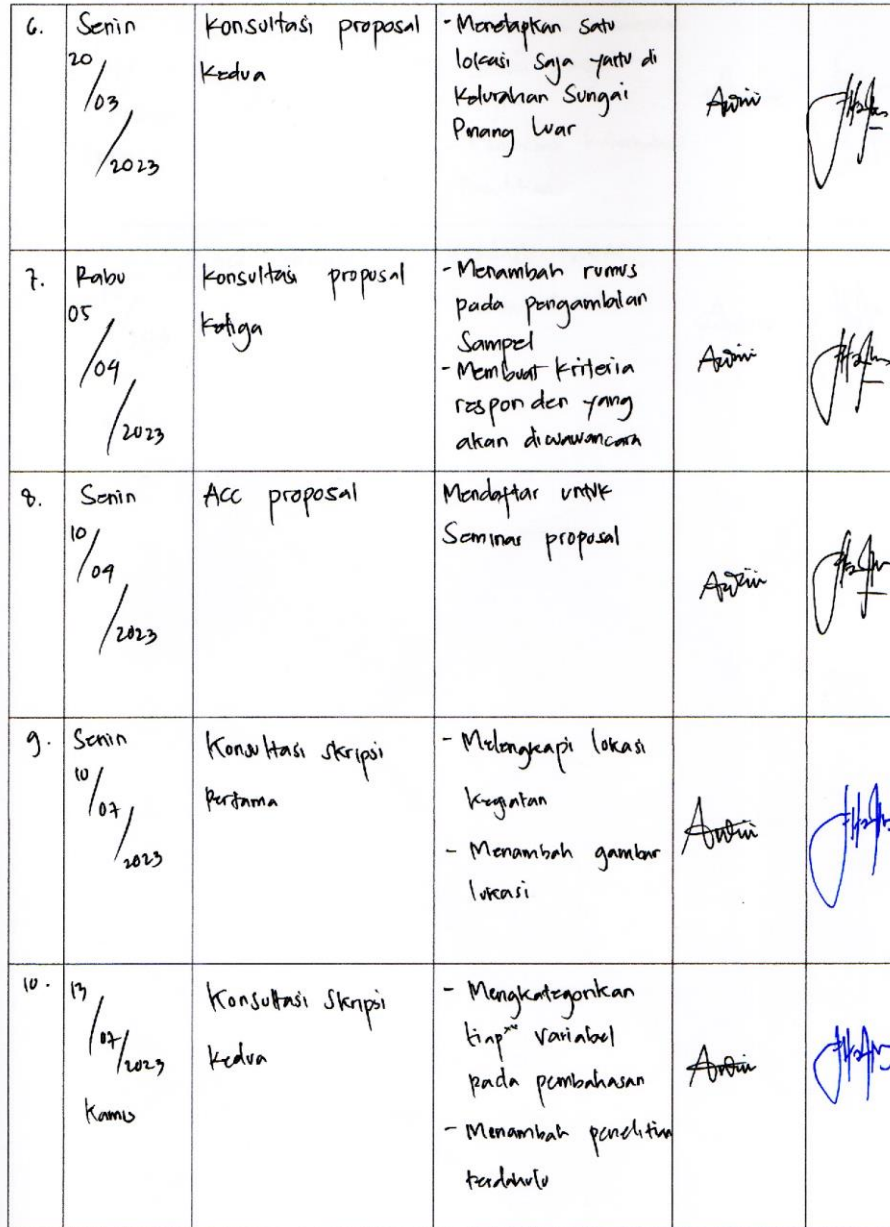 6.
Senin
20/03/2023
Konsultasi proposal
Kedua
- Menetapkan satu
lokasi saja yaitu di
Kelurahan Sungai
Pinang Luar
7.
Rabu
05/04/2023
Konsultasi proposal
Ketiga
- Menambah rumus
pada pengambalan
Sampel
- Membuat kriteria
responden yang
akan diwawancara
8.
Senin
10/04/2023
Acc proposal
Mendaftar untuk
Seminar proposal
9.
Senin
10/07/2023
Konsultasi skripsi
Pertama
- Melengkapi lokasi
kegiatan
- Menambah gambar
lokasi
10.
13/07/2023
Kamis
Konsultasi skripsi
Kedua
- Mengkategorikan
tiap" variabel
pada pembahasan
- Menambah penelitian
terdahulu